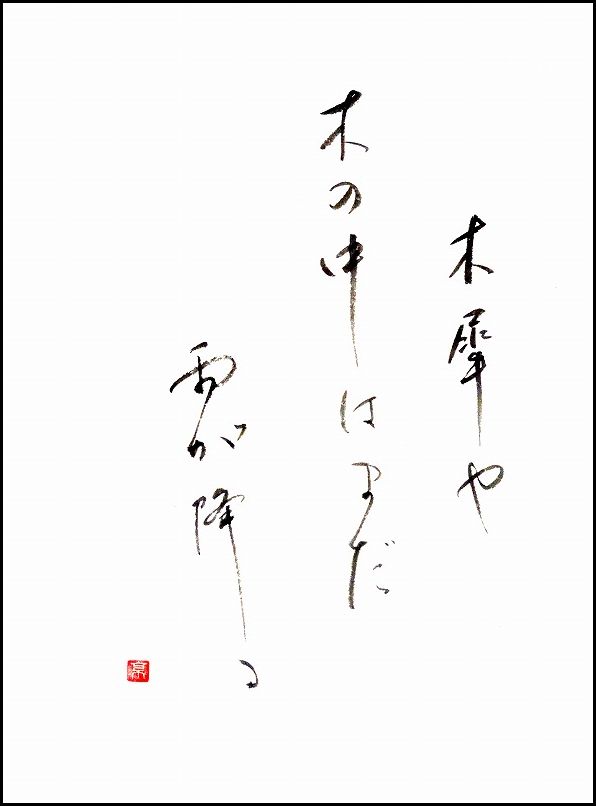 木犀や
木の中はまだ
雨が降る